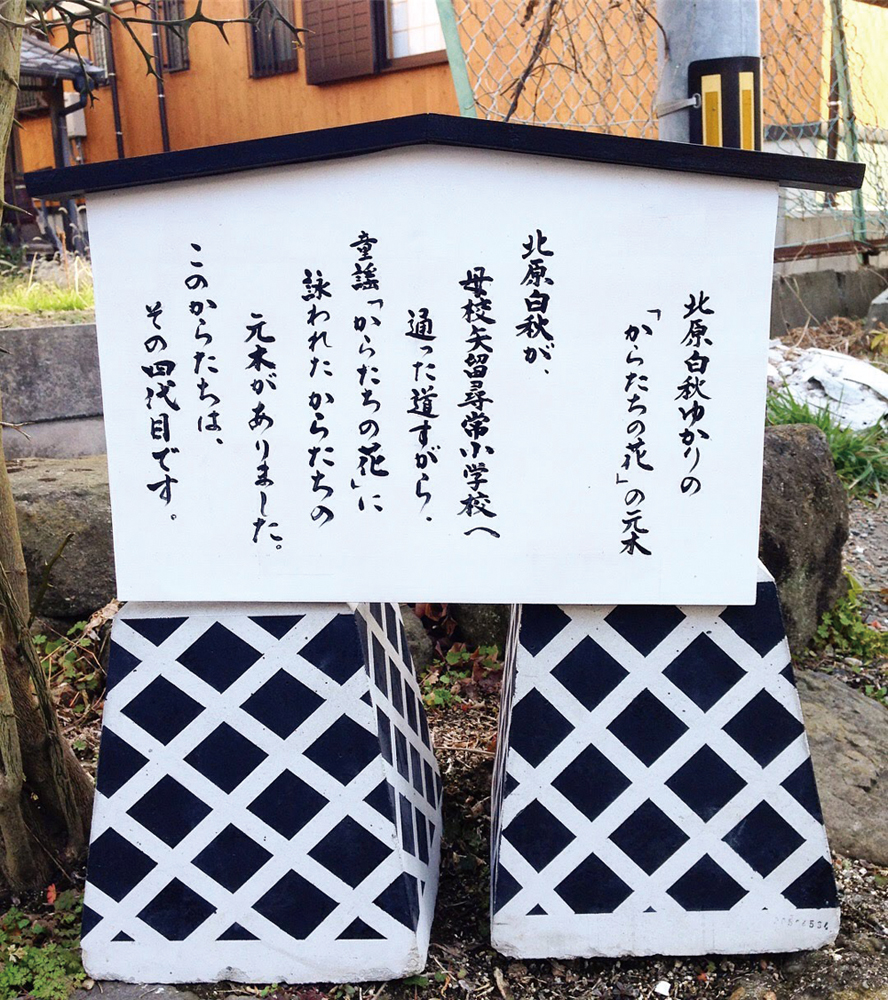 北原白秋ゆかりの
「からたちの花」の元木
北原白秋が、
母校矢留尋常小学校へ
通った道すがら、
童謡「からたちの花」に
詠われたからたちの
元木がありました。
このからたちは、
その四代目です。